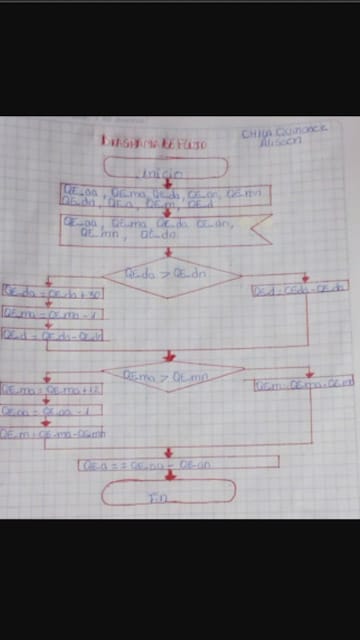 DIAGRAMA DE FLUJO
Inicio
QE_aa, QE_ma, QE_da, QE_an, QE_mn
QE_dn, QE_a, QE_m, QE_d
QE_aa, QE_ma, QE_da, QE_an,
QE_mn, QE_dn
QE_da > QE_dn
QE_da = QE_da + 30
QE_ma = QE_ma - 1
QE_d = QE_da - QE_dn
QE_d = QE_da - QE_dn
QE_ma > QE_mn
QE_ma = QE_ma + 12
QE_aa = QE_aa - 1
QE_m = QE_ma - QE_mn
QE_m = QE_ma - QE_mn
QE_a = = QE_aa - QE_an
Fin